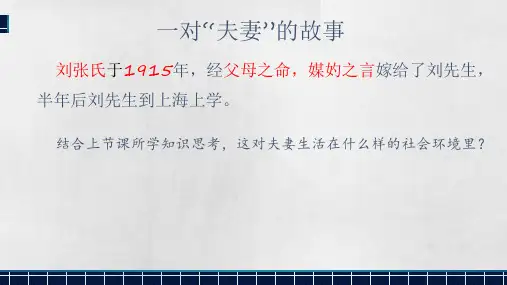 一对“夫妻”的故事
刘张氏于1915年，经父母之命，媒妁之言嫁给了刘先生，
半年后刘先生到上海上学。
结合上节课所学知识思考，这对夫妻生活在什么样的社会环境里？